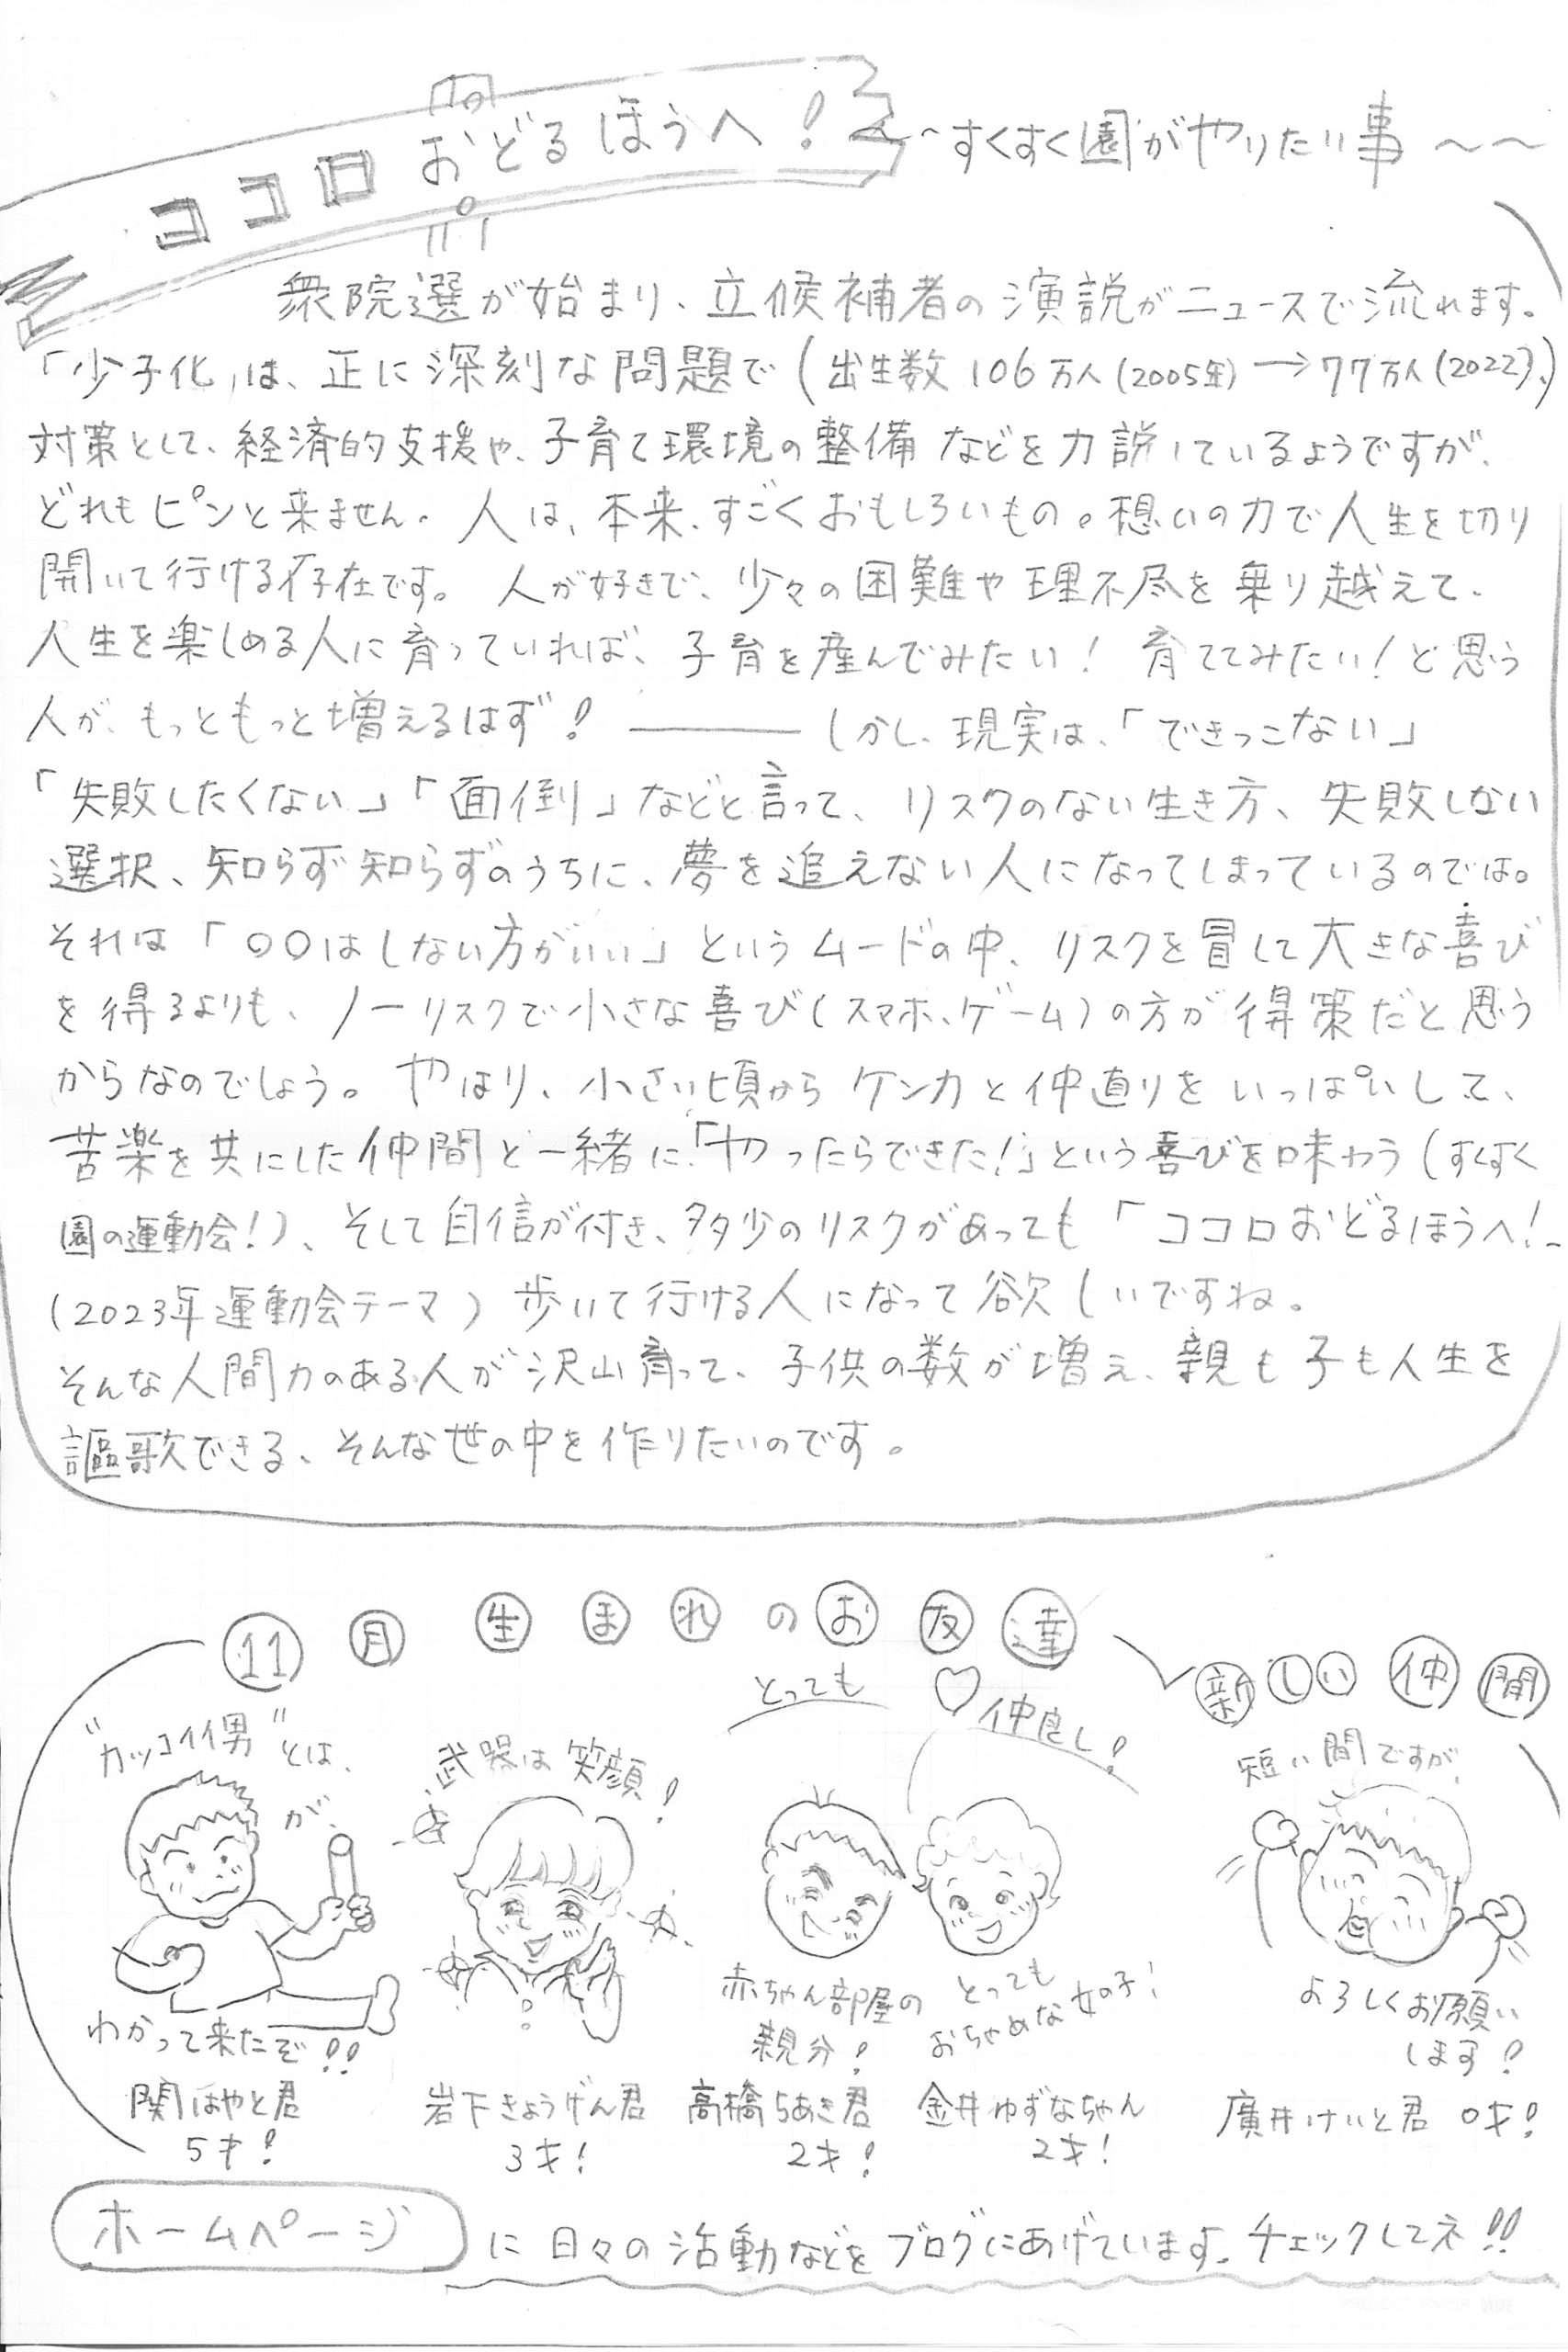 ココロおどるほうへ！
～すくすく園がやりたい事～～
衆院選が始まり、立候補者の演説がニュースで流れます。
「少子化」は、正に深刻な問題で(出生数106万人(2005年)→77万人(2022)、)
対策として、経済的支援や、子育て環境の整備などを力説しているようですが、
どれもピンと来ません。人は、本来、すごくおもしろいもの。想いの力で人生を切り
開いて行ける存在です。人が好きで、少々の困難や理不尽を乗り越えて、
人生を楽しめる人に育っていれば、子育を産んでみたい！育ててみたい！と思う
人が、もっともっと増えるはず！――しかし、現実は、「できっこない」
「失敗したくない」「面倒」などと言って、リスクのない生き方、失敗しない
選択、知らず知らずのうちに、夢を追えない人になってしまっているのでは。
それは「○○はしない方がいい」というムードの中、リスクを冒して大きな喜び
を得るよりも、ノーリスクで小さな喜び(スマホ、ゲーム)の方が得策だと思う
からなのでしょう。やはり、小さい頃からケンカと仲直りをいっぱいして、
苦楽を共にした仲間と一緒に「やったらできた！」という喜びを味わう(すくすく
園の運動会！)、そして自信が付き、多少のリスクがあっても「ココロおどるほうへ！」
(2023年運動会テーマ)歩いて行ける人になって欲しいですね。
そんな人間力のある人が沢山育って、子供の数が増え、親も子も人生を
謳歌できる、そんな世の中を作りたいのです。
11月生まれのお友達
新しい仲間
"カッコイイ男"とは、
が、
わかって来たぞ!!
関はやと君
5才！
武器は笑顔！
岩下きょうげん君
3才！
とっても♡仲良し！
赤ちゃん部屋の
親分！
高橋ちあき君
2才！
とっても
おちゃめな女の子！
金井ゆずなちゃん
2才！
短い間ですが、
よろしくお願い
します！
廣井けいと君 0才！
ホームページに日々の活動などをブログにあげています。チェックしてネ!!